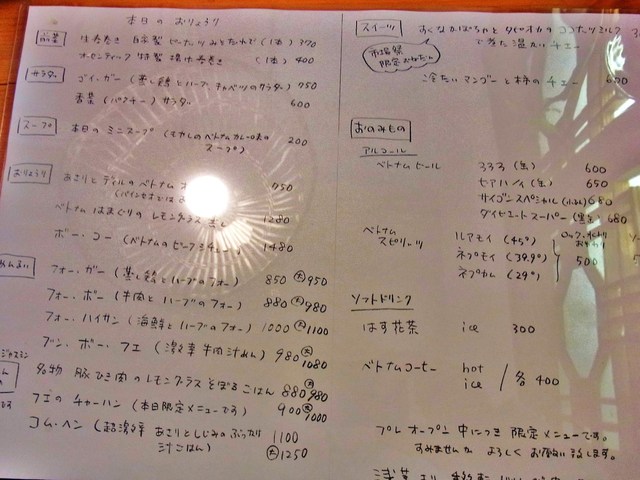 本日のおりょうり
前菜
生春巻き 自家製ピーナツみそだれで (1本) 370
オーセンティック特製 揚げ春巻き (1本) 400
サラダ
ゴイ・ガー (蒸し鶏とハーブ、キャベツのサラダ) 750
香菜 (パクチー) サラダ 600
スープ
本日のミニスープ (もやしのベトナムカレー風味の 200
スープ)
おりょうり
あさりとディルのベトナム
ベトナムはまぐりのレモングラス蒸し 1280
ボー・コー (ベトナムのビーフシチュー) 1480
フォー・ガー (蒸し鶏とハーブのフォー) 850 大950
フォー・ボー (牛肉とハーブのフォー) 880 大980
フォー・ハイサン (海鮮とハーブのフォー) 1000 大1100
ブン・ボー・フエ (激辛牛肉汁めん) 980 大1080
ジャスミン
名物 豚ひき肉のレモングラスそぼろごはん 880 大980
フエのチャーハン (本日限定メニューです) 900 大1000
コム・ヘン (超激辛 あさりとしじみのぶっかけ 1100
汁ごはん) 大1250
スイーツ
すくなかぼちゃとタピオカのココナツミルク
で煮た温かいチェー
市場祭
限定
冷たいマンゴーと柿のチェー 600
おのみもの
アルコール
ベトナムビール 333 (缶) 600
ビアハノイ (缶) 650
サイゴンスペシャル 680
ダイビエットスーパー (黒) 680
ベトナム
スピリーツ
ルアモイ (45°)
ネプモイ (39.9°) 500
ネプカム (29°)
ソフトドリンク
はす花茶 ice 300
ベトナムコーヒー hot
ice / 各400
プレオープン中につき限定メニューです。
すみませんがよろしくお願い致します。